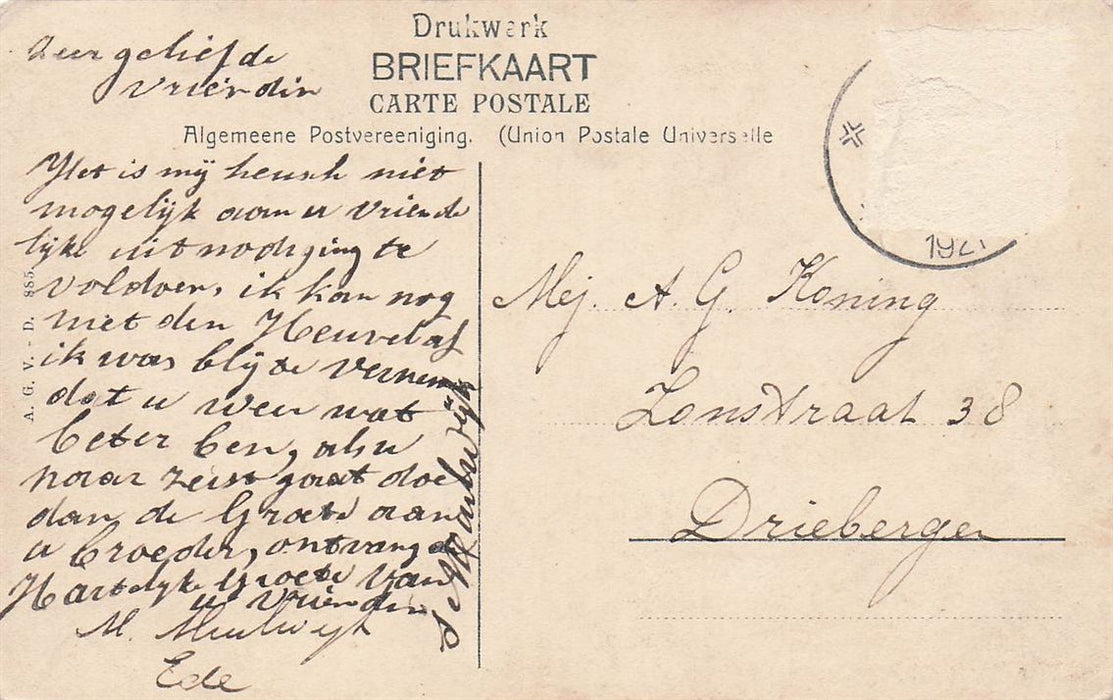 Drukwerk
BRIEFKAART
CARTE POSTALE
Algemeene Postvereeniging. (Union Postale Universelle
Zeer geliefde
Vriendin
Het is mij heusch niet
mogelijk aan u vriende
lijke uitnodiging te
voldoen, ik kan nog
niet den Heuvel af
ik was blij te vernemen
dat u weer wat
beter ben, als u
naar Zeist gaat doe
dan de Groete aan
u broeder, ontvang de
Hartelijke Groete van
u Vriendin
Ede
A. G. V. - D. 885.
Mej. A. G. Koning
38
Drieberge
192